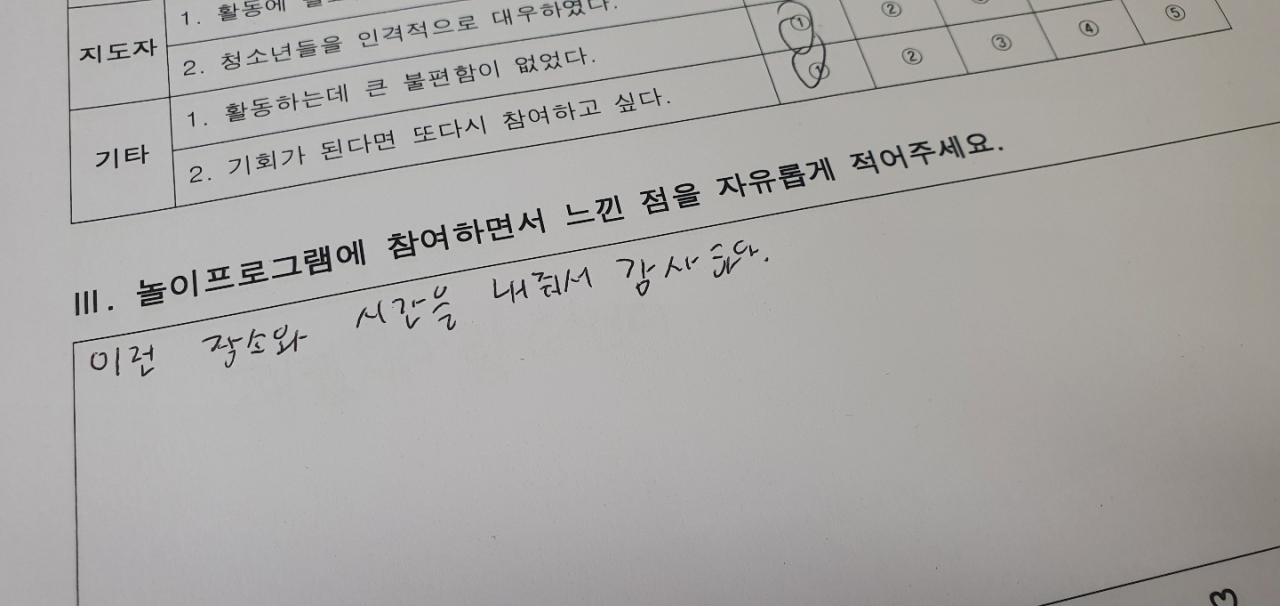 지도자
1. 활동에
2. 청소년들을 인격적으로 대우하였다.
기타
1. 활동하는데 큰 불편함이 없었다.
① ②
2. 기회가 된다면 또다시 참여하고 싶다.
① ② ③ ④ ⑤
III. 놀이프로그램에 참여하면서 느낀 점을 자유롭게 적어주세요.
이런 장소와 시간을 내줘서 감사하다.